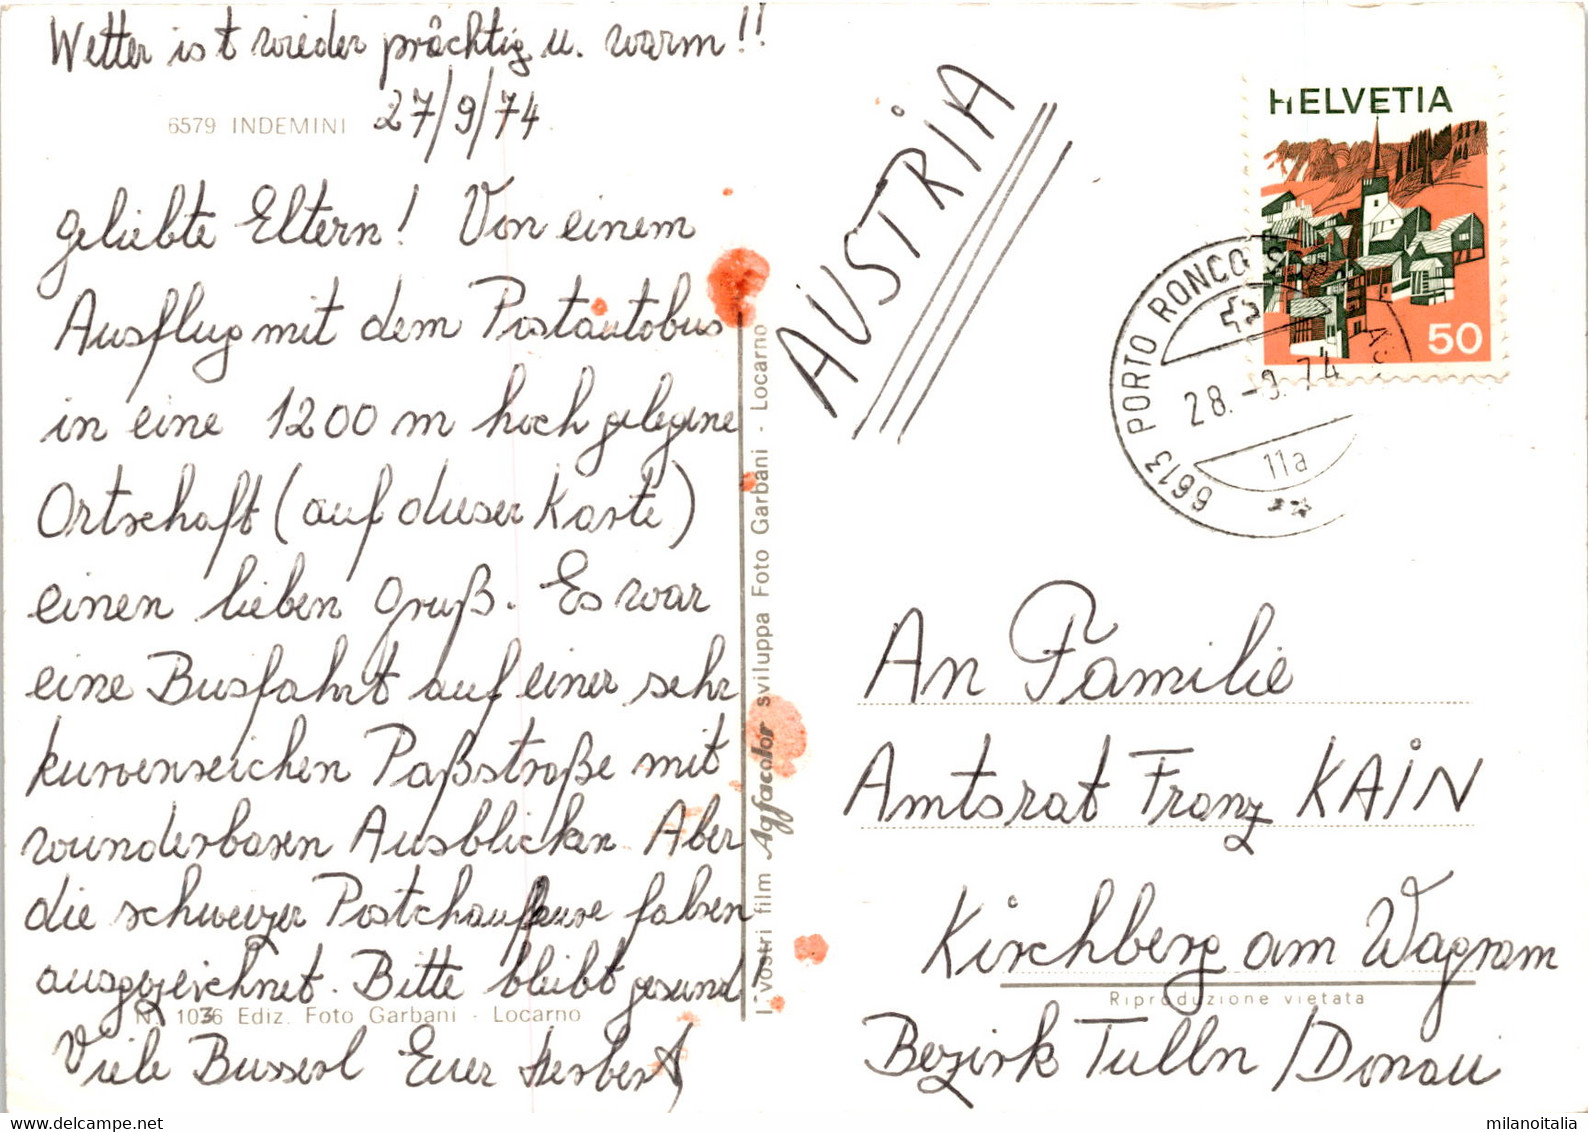 Wetter ist wieder prächtig u. warm!!
6579 INDEMINI 27/9/74
geliebte Eltern! Von einem
Ausflug mit dem Postautobus
in eine 1200 m hoch gelegene
Ortschaft (auf dieser Karte)
einen lieben Gruß. Es war
eine Busfahrt auf einer sehr
kurvenreichen Paßstraße mit
wunderbaren Ausblicken. Aber
die schweizer Postchauffeure fahren
ausgezeichnet. Bitte bleibt gesund
N. 1036 Ediz. Foto Garbani - Locarno
Viele Busserl Euer Herbert
I vostri film Agfacolor sviluppa Foto Garbani - Locarno
AUSTRIA
HELVETIA
50
6613 PORTO RONCO
28.-9.74
11a
An Familie
Amtsrat Franz KAIN
Kirchberg am Wagram
Riproduzione vietata
Bezirk Tulln/Donau
milanoitalia